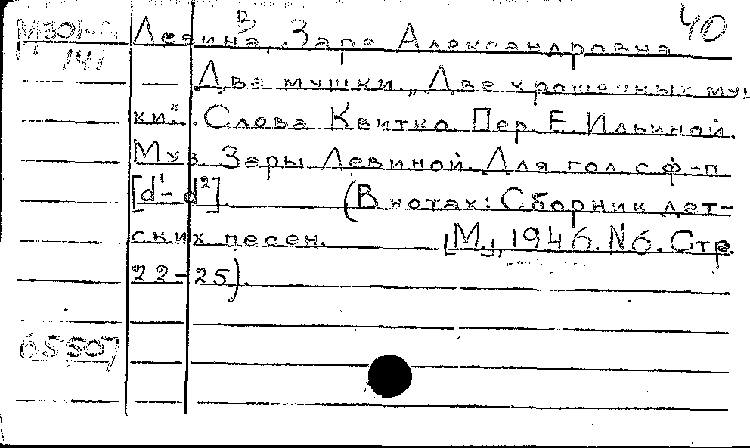 М301-
141
40
Левина, Зара Александровна
Два мушки. „Две крошечных муш
ки". Слова Квитко. Пер. Е. Ильиной.
Муз. Зары Левиной. Для гол. с ф-п
[d¹-d²]. (В нотах: Сборник дет-
ских песен. [М.], 1946. N6. Стр.
22-25).
65507